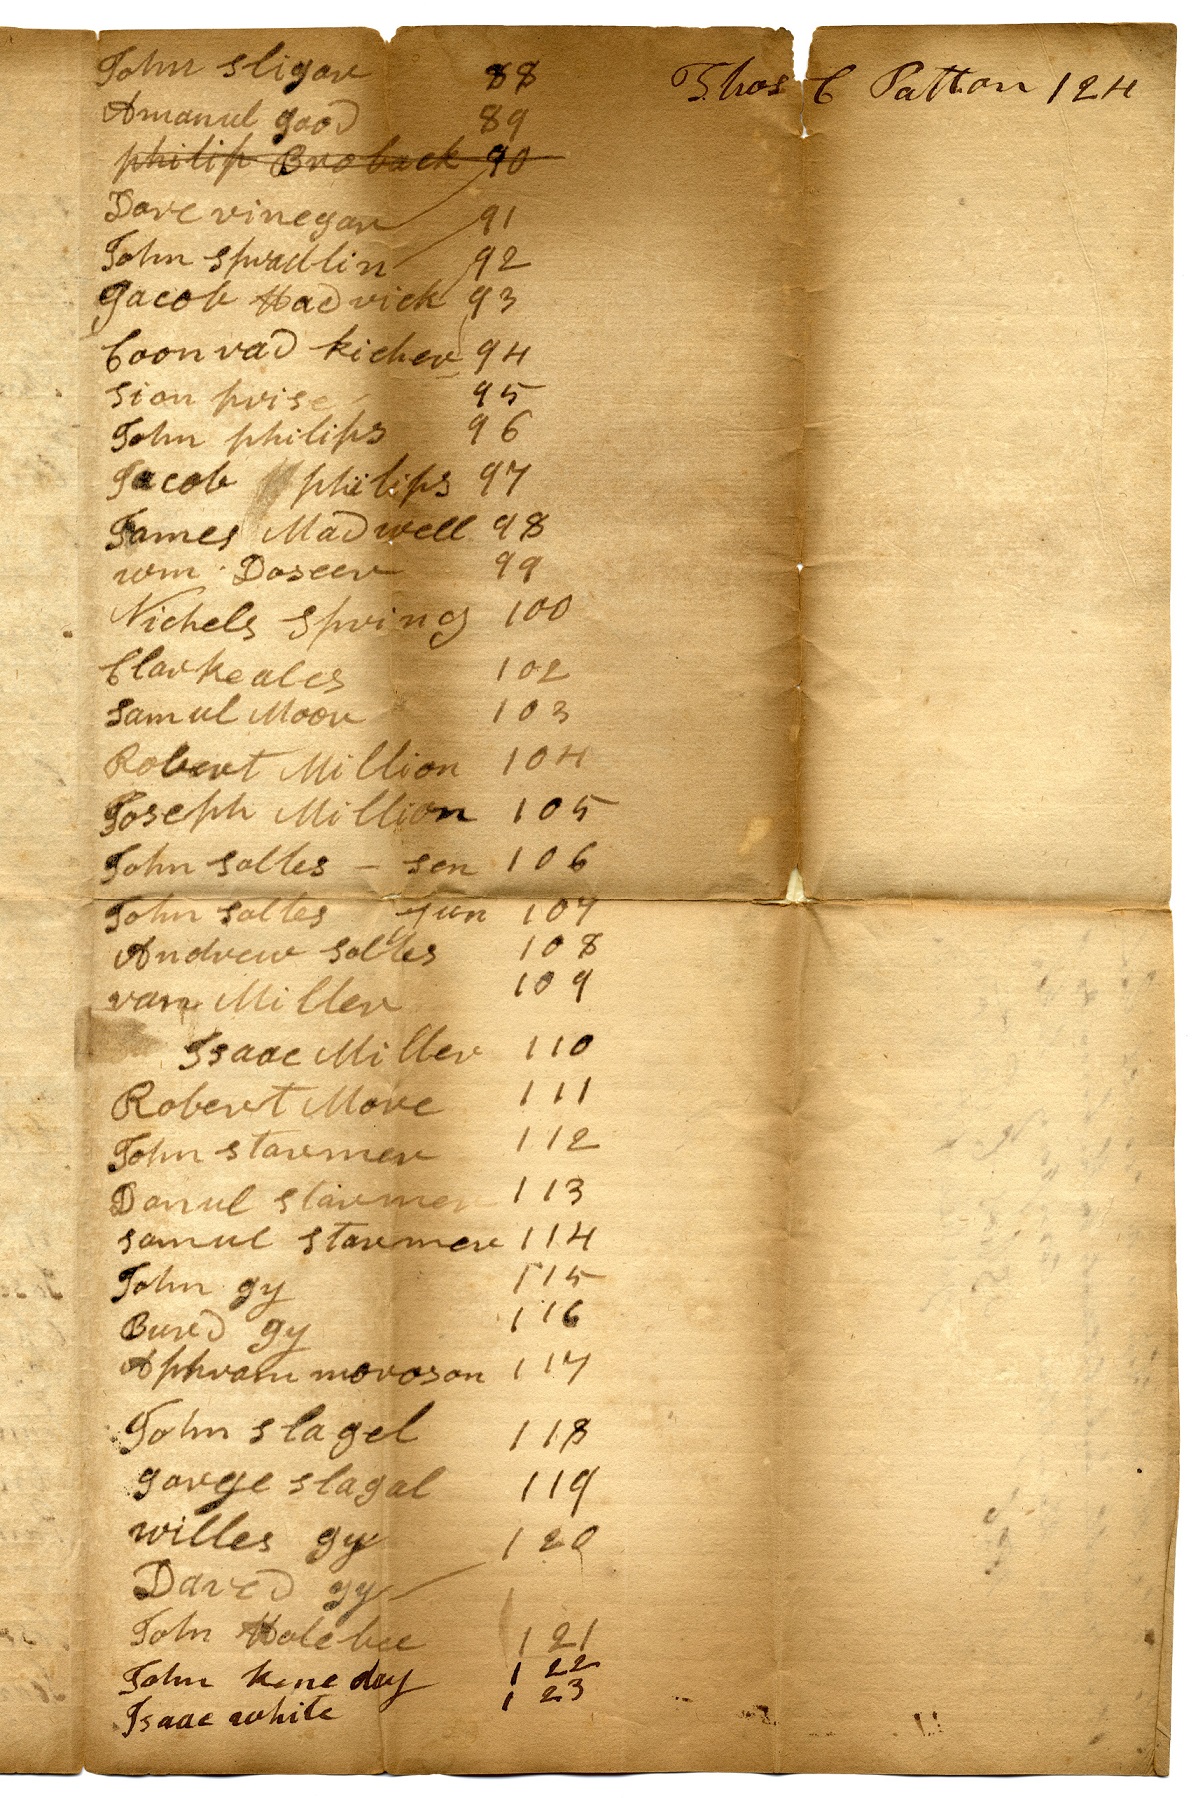 John sligar 88
Amanul good 89
philip Broback 90
Dave vinegar 91
John spradlin 92
Jacob Hadrick 93
Coonrad kicher 94
sion prise 95
John philips 96
Jacob philips 97
James Madwell 98
wm Doseer 99
Nichels spring 100
Clarkeales 102
samul Moor 103
Robert Million 104
Joseph Million 105
John soltes - sen 106
John soltes jun 107
Andrew soltes 108
van Miller 109
Isaac Miller 110
Robert More 111
John starmer 112
Danul starmer 113
samul starmer 114
John gy 115
Bured gy 116
Aphram moroson 117
John slagel 118
gorge slagal 119
willes gy 120
Daved gy
John Holebee 121
John kene day 122
Isaac white 123
Thos C Patton 124